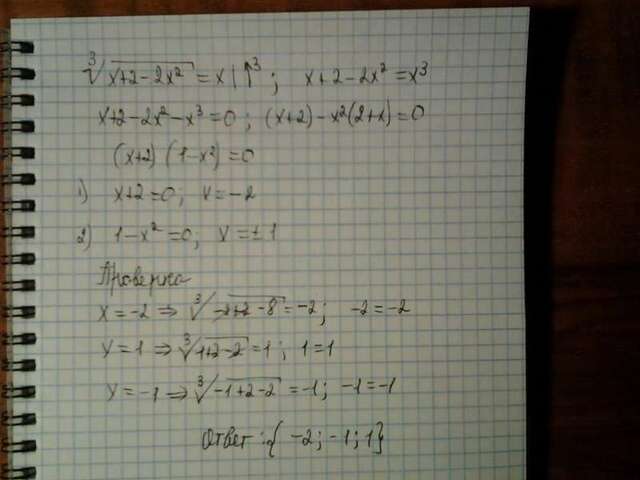 ∛(x+2-2x²) = x |↑³ ; x+2-2x² = x³
x+2-2x²-x³=0 ; (x+2)-x²(2+x)=0
(x+2)(1-x²)=0
1) x+2=0; x=-2
2) 1-x²=0; x=±1
Проверка
x=-2 ⇒ ∛(-2+2-8)=-2; -2=-2
x=1 ⇒ ∛(1+2-2)=1; 1=1
x=-1 ⇒ ∛(-1+2-2)=-1; -1=-1
Ответ: {-2; -1; 1}